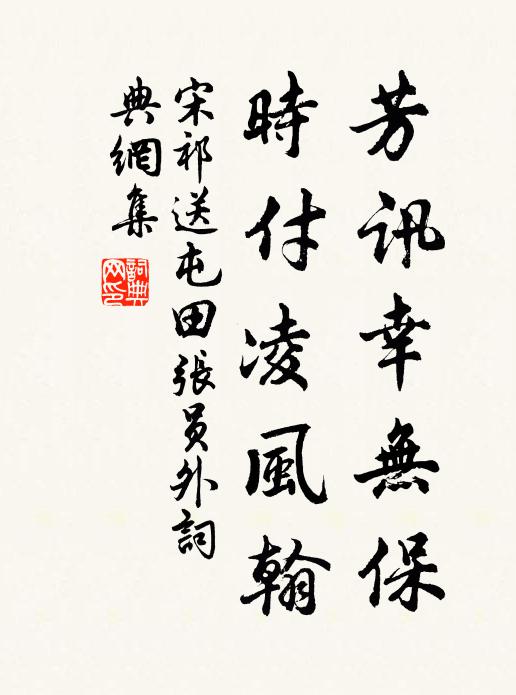 芳訊幸無保
時付凌風翰
宋祁送屯田張員外詞
典網集
詞典
网印